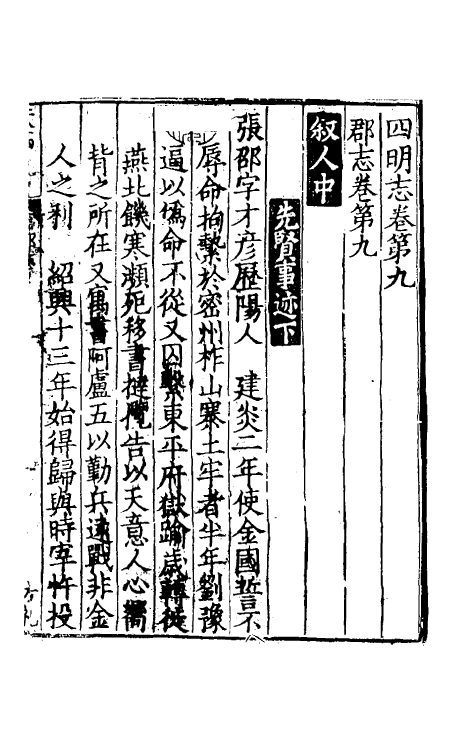 四明志卷第九
郡志卷第九
叙人中
先賢事迹下
張邵字才彦歷陽人 建炎二年使金國誓不
辱命拘繫於密州柞山寨土牢者半年劉豫
逼以僞命不從又囚繫東平府獄踰歲轉徙
燕北饑寒瀕死移書撻攬告以天意人心嚮
背之所在又寓書阿盧五以勤兵遠戰非金
人之利 紹興十三年始得歸與時宰忤投